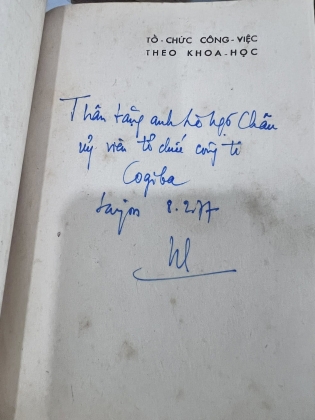 TỔ-CHỨC CÔNG-VIỆC
THEO KHOA-HỌC
Thân tặng anh Hồ Ngộ Chân
uỷ viên tổ chức công ti
Cogiba
Saigon